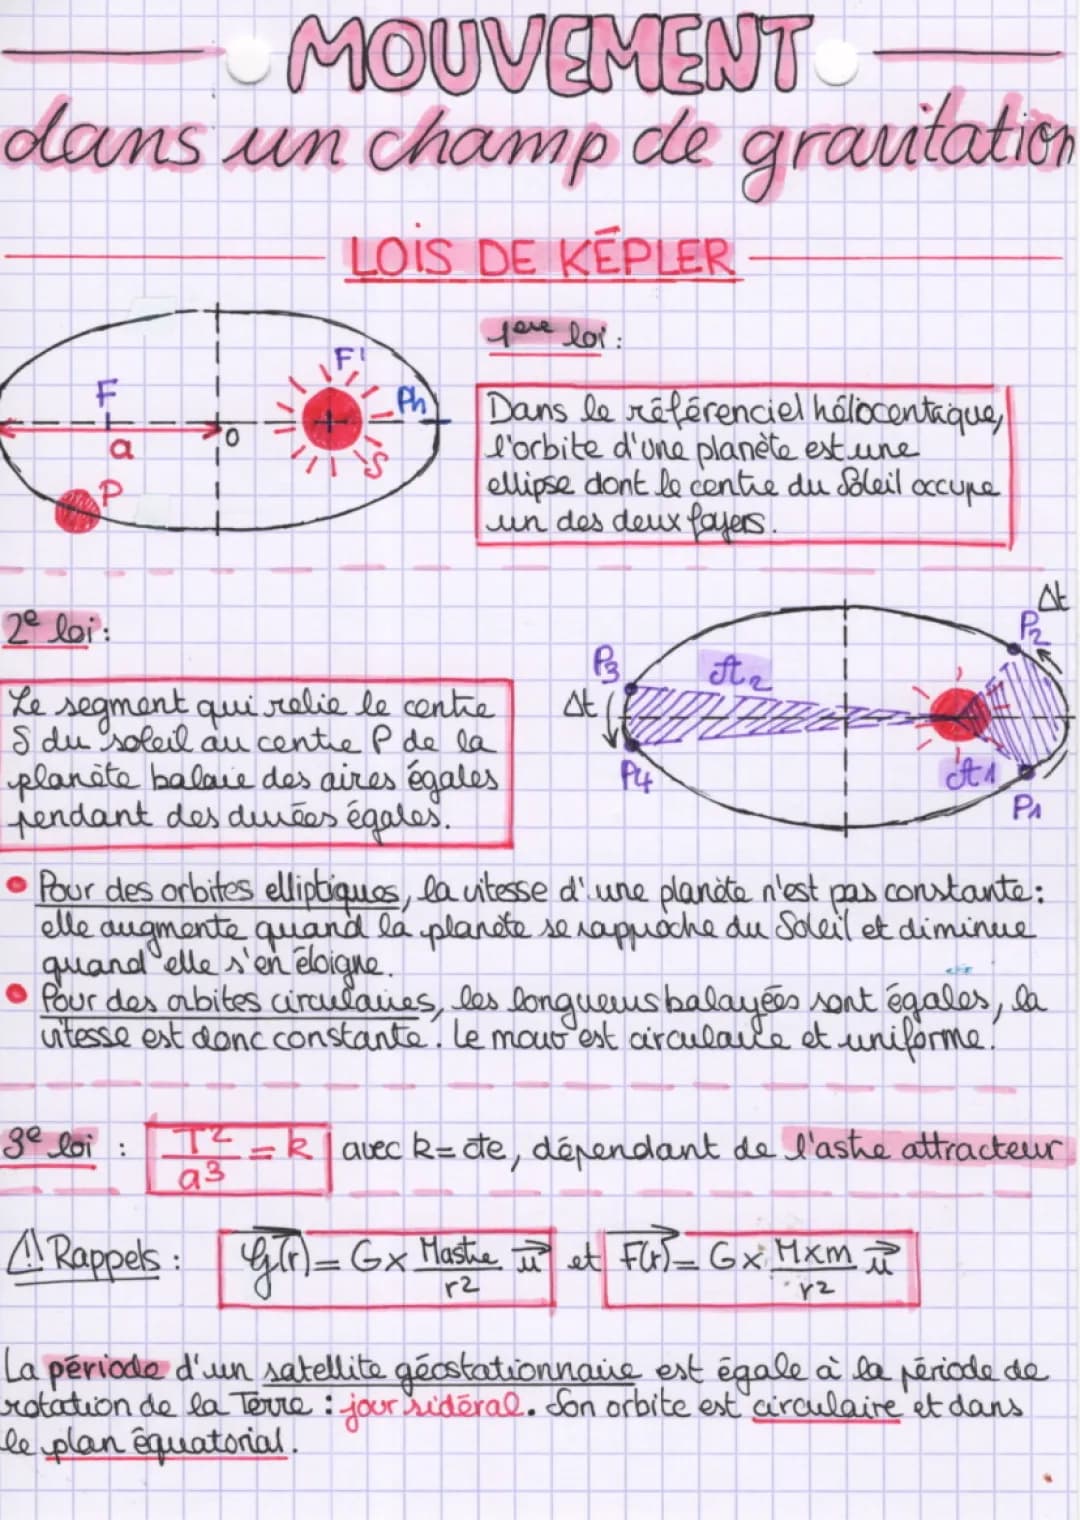 MOUVEMENT
dans un champ de gravitation
LOIS DE KÉPLER
F
F'
Ph
a
O
S
P
1ère loi :
Dans le référenciel hélocentrique,
l'orbite d'une planète est une
ellipse dont le centre du Soleil occupe
un des deux foyers.
2e loi :
Le segment qui relie le centre
S du soleil au centre P de la
planète balaie des aires égales
pendant des durées égales.
Δt
P2
P3
A2
Δt
P4
A1
P1
• Pour des orbites elliptiques, la vitesse d'une planète n'est pas constante :
elle augmente quand la planète se rapproche du Soleil et diminue
quand elle s'en éloigne.
• Pour des orbites circulaires, les longueurs balayées sont égales, la
vitesse est donc constante. Le mouv est circulaire et uniforme.
3e loi : T²/a³ = k avec k = cte, dépendant de l'astre attracteur
⚠ Rappels : G(r) = G × Mastre/r² u et F(r) = G × M×m/r² u
La période d'un satellite géostationnaire est égale à la période de
rotation de la Terre : jour sidéral. Son orbite est circulaire et dans
le plan équatorial.